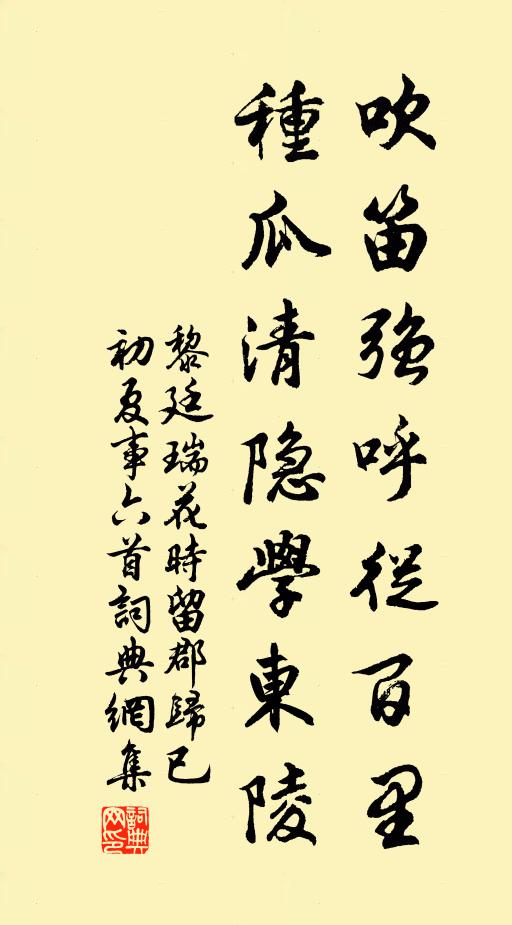 吹笛強呼從百里
種瓜清隐學東陵
黎廷瑞花時留郡歸已
初夏事六首詞典網集
詞典網印